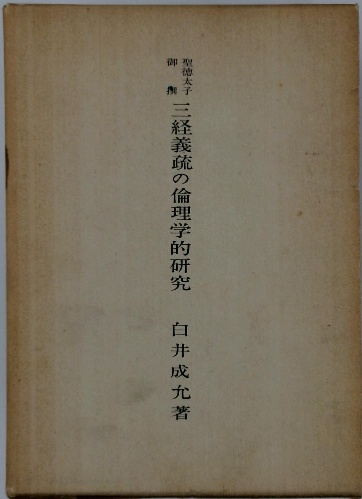 聖徳太子
御撰
三経義疏の倫理学的研究
白井成允著